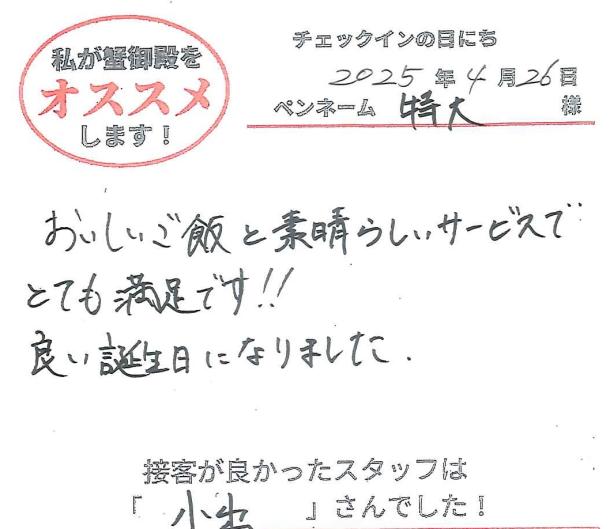 私が蟹御殿を
オススメ
します!
チェックインの日にち
2025年4月26日
ペンネーム 特大 様
おいしいご飯と素晴らしいサービスで
とても満足です!!
良い誕生日になりました.
接客が良かったスタッフは
「 小出 」さんでした!